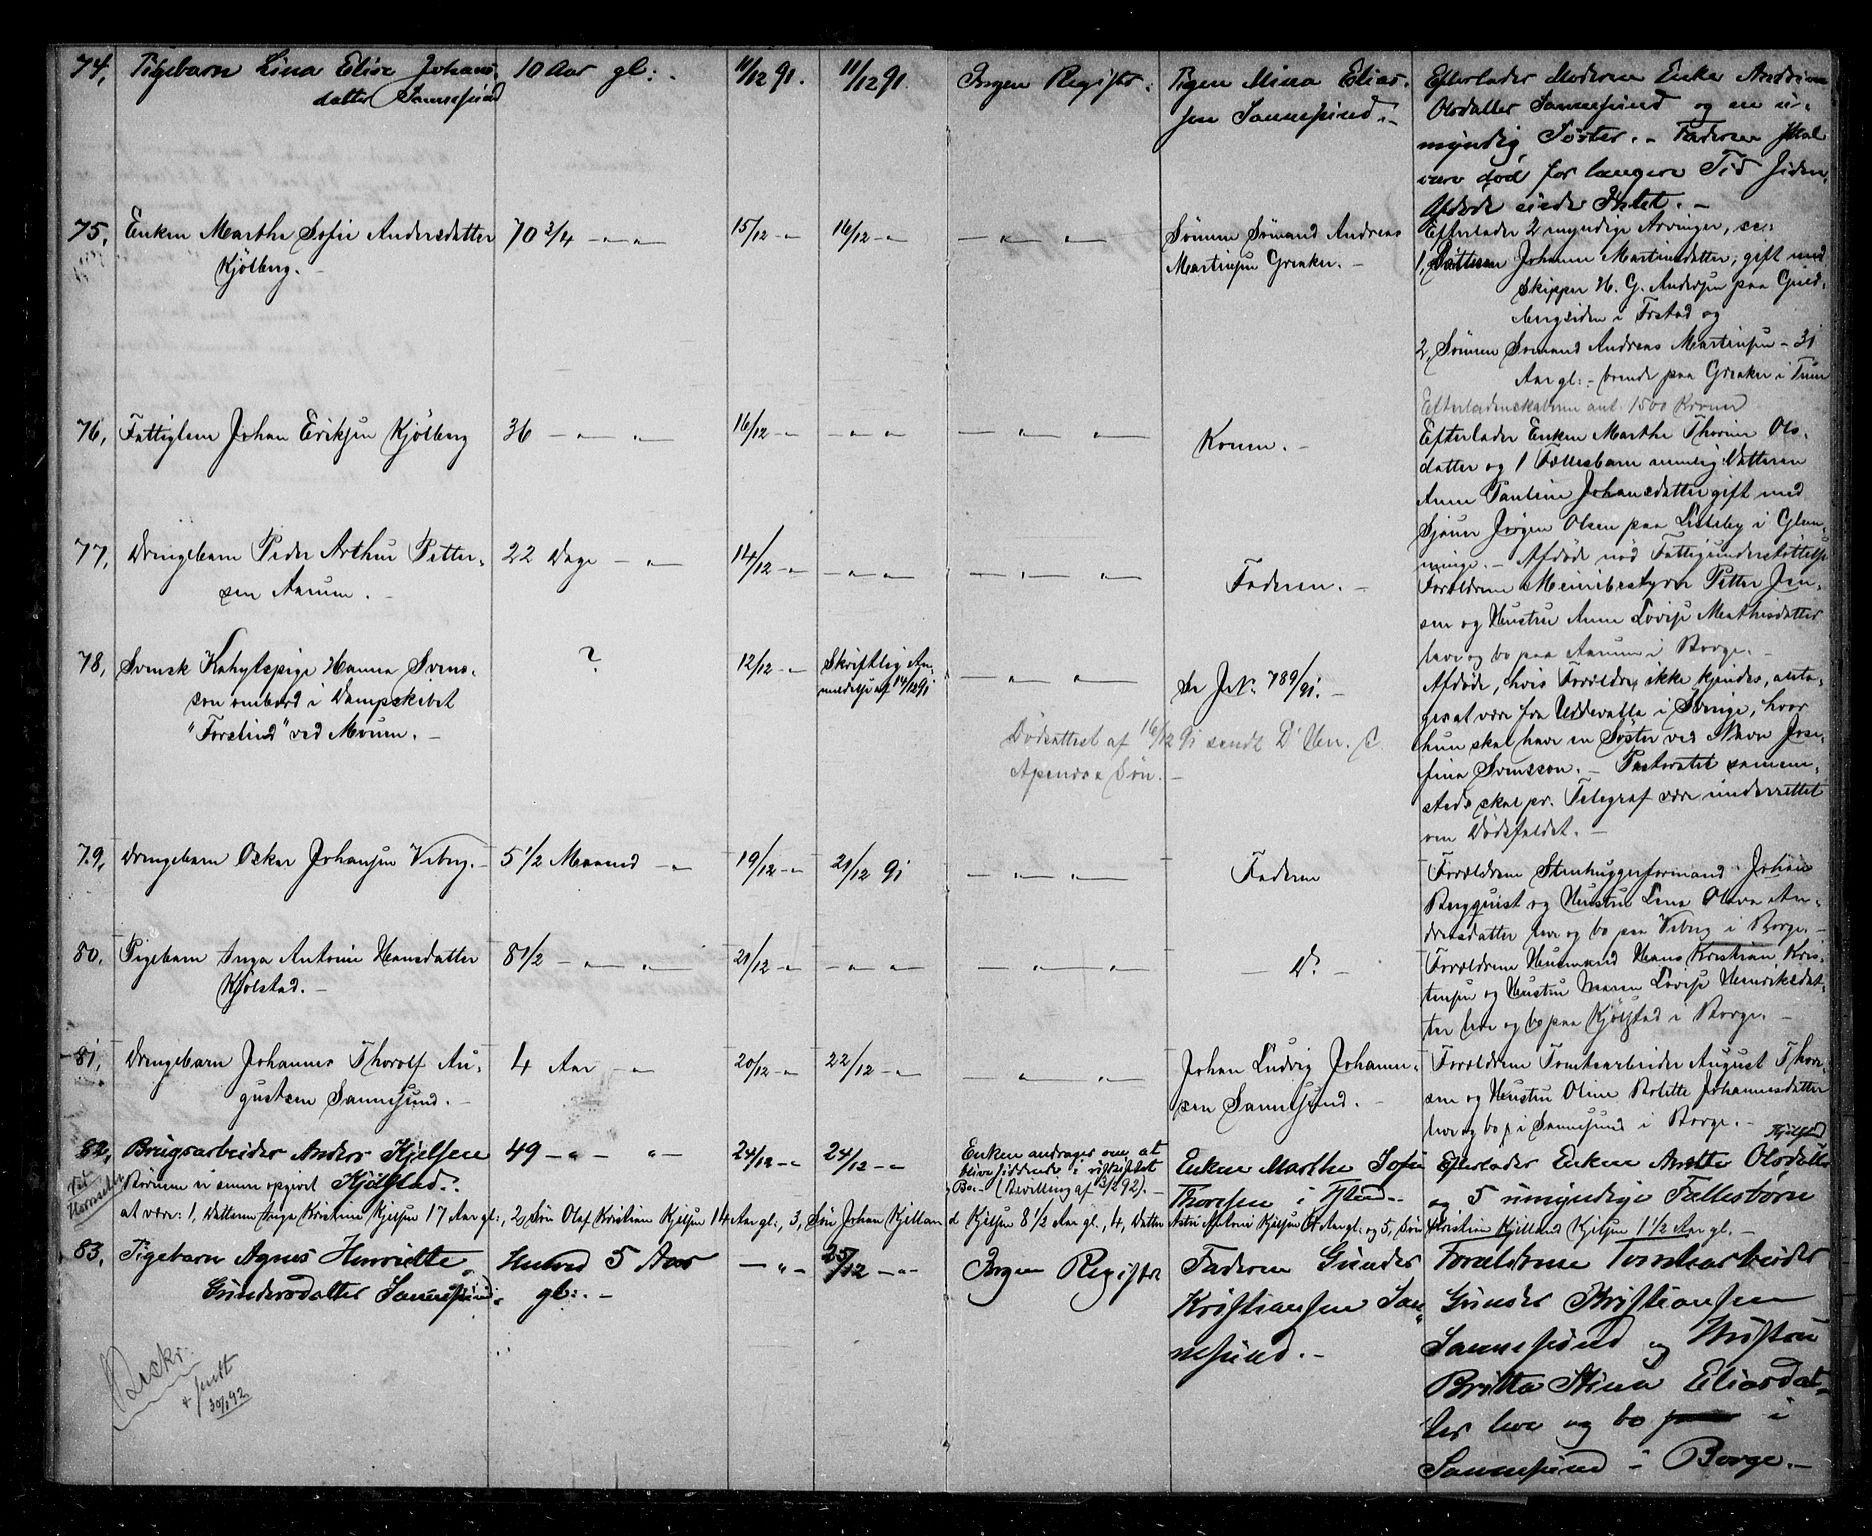 74, Pigebarn Lina Elise Johans-
datter Sannesund
10 Aar gl:.
11/12 91.
11/12 91.
Ingen Register.
Pigen Mina Elias-
sen Sannesund.-
Efterlader Moderen Enke Andrine
Olsdatter Sannesund og en u-
myndig Søster.- Faderen skal
være død for længere Tid siden.
Afdøde under Skolet.-
75, Enken Marthe Sofie Andersdatter
Kjølberg.-
70 3/4 - " - "
15/12 - "
16/12 - "
- " - " -
Sønnen Sømand Andreas
Martinsen Greaker.-
Efterlader 2 myndige Arvinger, sc:
1, Datteren Johanne Martinsdatter, gift med
Skipper H. G. Andersen paa Guld-
bergsiden i Fr.stad og
2, Sønnen Sømand Andreas Martinsen - 31
Aar gl:- boende paa Greaker i Tune
Efterladenskaberne ant. 1500 Kroner
76, Fattiglem Johan Eriksen Kjølberg
36 - " - "
16/12 - "
- " - "
- " - " -
Konen.-
Efterlader Enken Marthe Thorine Ols-
datter og 1 Fællesbarn nemlig: Datteren
Anne Pauline Johansdatter gift med
Sjauer Jørgen Olsen paa Lisleby i Glem-
minge.- Afdøde nød Fattigunderstøttelse
77, Drengebarn Peder Arthur Petter-
sen Aarum.-
22 Dage - "
14/12 - "
- " - "
- " - " -
Faderen.-
Forældrene Meieribestyrer Petter Jen-
sen og Hustru Anne Lovise Mathisdatter
leve og bo paa Aarum i Borge.-
78, Svensk Kahytspige Hanna Svens-
son ombord i Dampskibet
"Forslund" ved Moum.-
?
12/12 - "
Skriftlig An-
meldelse af 14/12 91
- " - " -
Se J.N: 789/91.-
Dødsattest af 16/12 91 sendt D' Hrr.
Søn.-
Afdøde, hvis Forældre ikke kjendes, anta-
ges at være fra Uddevalla i Sverige, hvor
hun skal have en Søster ved Navn Jose-
fina Svensson.- Pastoratet sammen-
steds skal pr. Telegraf være underrettet
om Dødsfaldet.-
79, Drengebarn Oskar Johansen Viberg.-
5 1/2 Maaned - "
19/12 - "
21/12 91
- " - " -
Faderen
Forældrene Stenhuggerformand Johan
Bergquist og Hustru Lena Olava An-
dreasdatter leve og bo paa Viberg i Borge.-
80, Pigebarn Inga Antonie Hansdatter
Kjølstad.-
8 1/2 - " - "
21/12 - "
- " - "
- " - " -
- D: -
Forældrene Husmand Hans Kristian Kris-
tensen og Hustru Maren Lovise Henriksdat-
ter leve og bo paa Kjølstad i Borge.-
81, Drengebarn Johannes Thorolf Au-
gustsen Sannesund.-
4 Aar - "
20/12 - "
22/12 - "
- " - " -
Johan Ludvig Johann-
sen Sannesund.-
Forældrene Tomtearbeider August Thor-
sen og Hustru Oline Bolette Johannesdatter
leve og bo i Sannesund i Borge.-
82, Brugsarbeider Anders Kjelsen
Kjølstad.
Børnene er senere opgivet
49 - " - "
24/12 - "
24/12 - "
Enken andrager om at
blive siddende i uskiftet
Bo.- (Bevilling af 3/2 92).-
Enken Marthe Sofie
Thoresen i
Efterlader Enken Anette Olsdatter
Kjølstad
og 5 umyndige Fællesbørn
at være: 1, Datteren Inga Kristine Kjelsen 17 Aar gl:, 2, Søn Olaf Kristian Kjelsen 14 Aar gl:, 3, Søn Johan Kjelland Kjelsen 8 1/2 Aar gl., 4, Datter Kjelsen Aar gl: og 5, Søn Kristian Kjelland Kjelsen 1 1/2 Aar gl.-
83, Pigebarn Agnes Henriette
Gundersdatter Sannesund.
Henved 5 Aar
gl:.-
- " -
25/12 - "
Ingen Register
Faderen Gunder
Kristiansen San-
nesund.-
Forældrene Tomtearbeider
Gunder Kristiansen
Sannesund og Hustru
Britta Stina Eliasdat-
ter leve og bo i
Sannesund i Borge.-
Afskr.
sendt
30/1 92